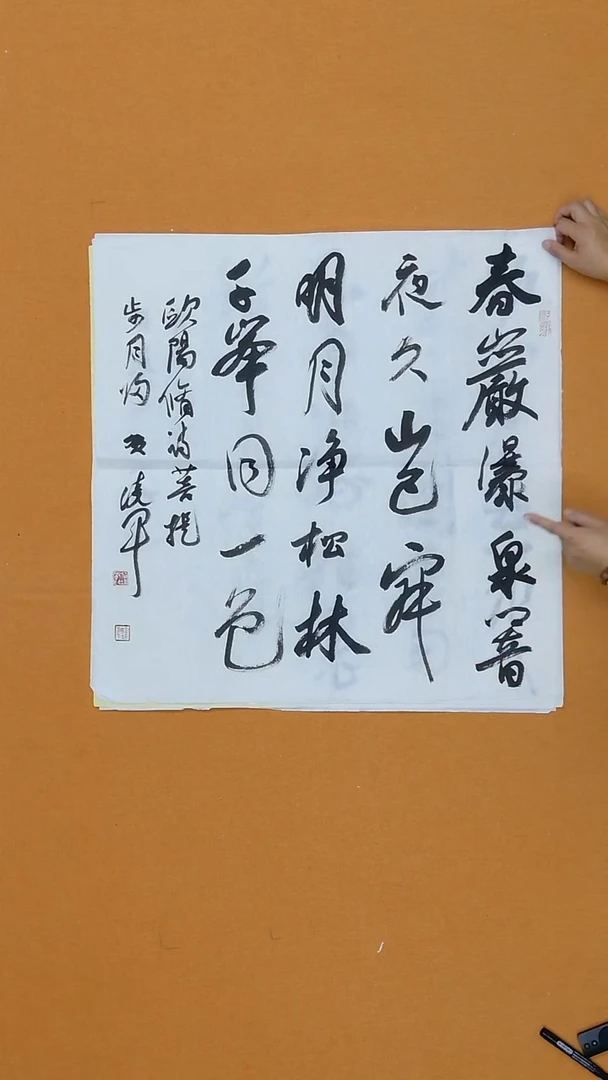 春巖瀑泉響
夜久山已寂
明月净松林
千峯同一色
歐陽脩詩菩提
步月歸